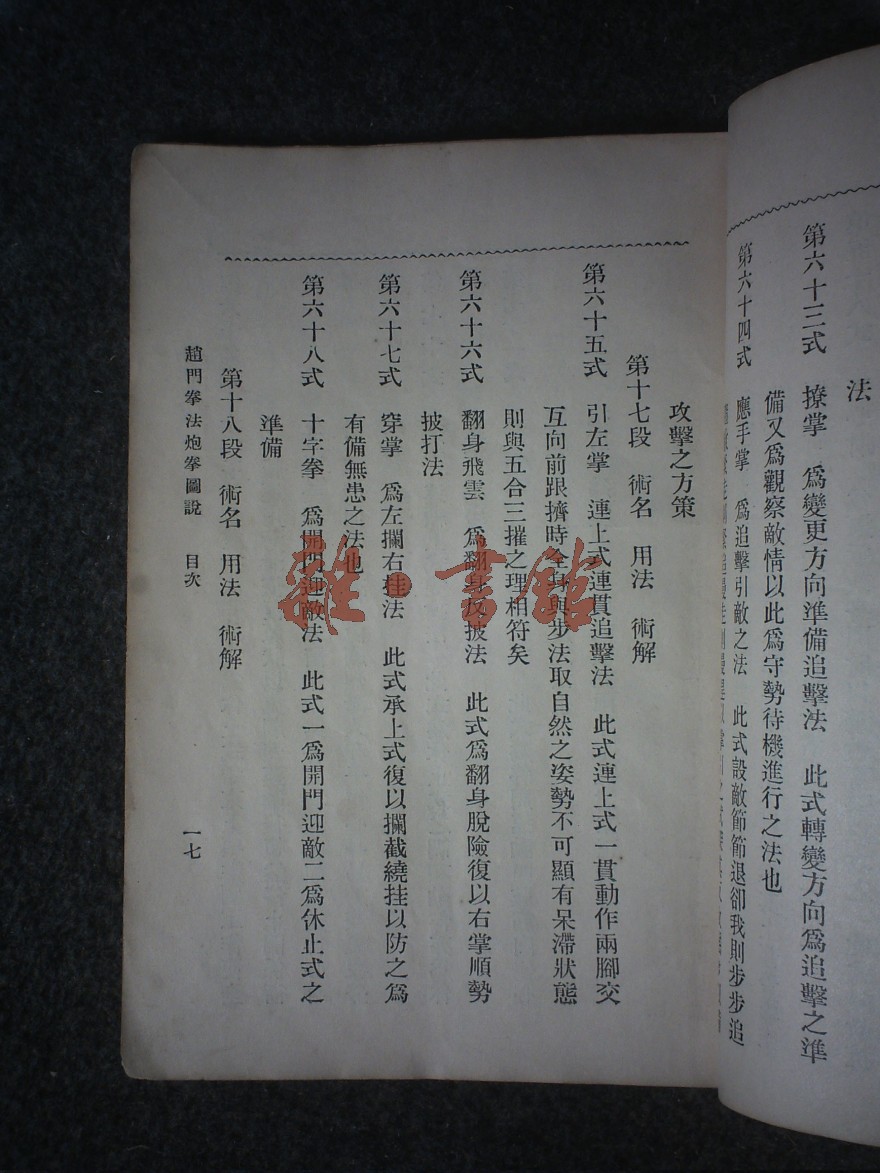 法
第六十三式　撩掌　爲變更方向準備追擊法　此式轉變方向爲追擊之準
備又爲觀察敵情以此爲守勢待機進行之法也
第六十四式　應手掌　爲追擊引敵之法　此式設敵節節退卻我則步步追
攻擊之方策
第十七段　術名　用法　術解
第六十五式　引左掌　連上式連貫追擊法　此式連上式一貫動作兩腳交
互向前跟擠時全身與步法取自然之姿勢不可顯有呆滯狀態
則與五合三摧之理相符矣
第六十六式　翻身飛雲　爲翻身反披法　此式爲翻身脫險復以右掌順勢
披打法
第六十七式　穿掌　爲左攔右挂法　此式承上式復以攔截繞挂以防之爲
有備無患之法也
第六十八式　十字拳　爲開門迎敵法　此式一爲開門迎敵二爲休止式之
準備
第十八段　術名　用法　術解
趙門拳法炮拳圖說　目次
一七
雜·書館